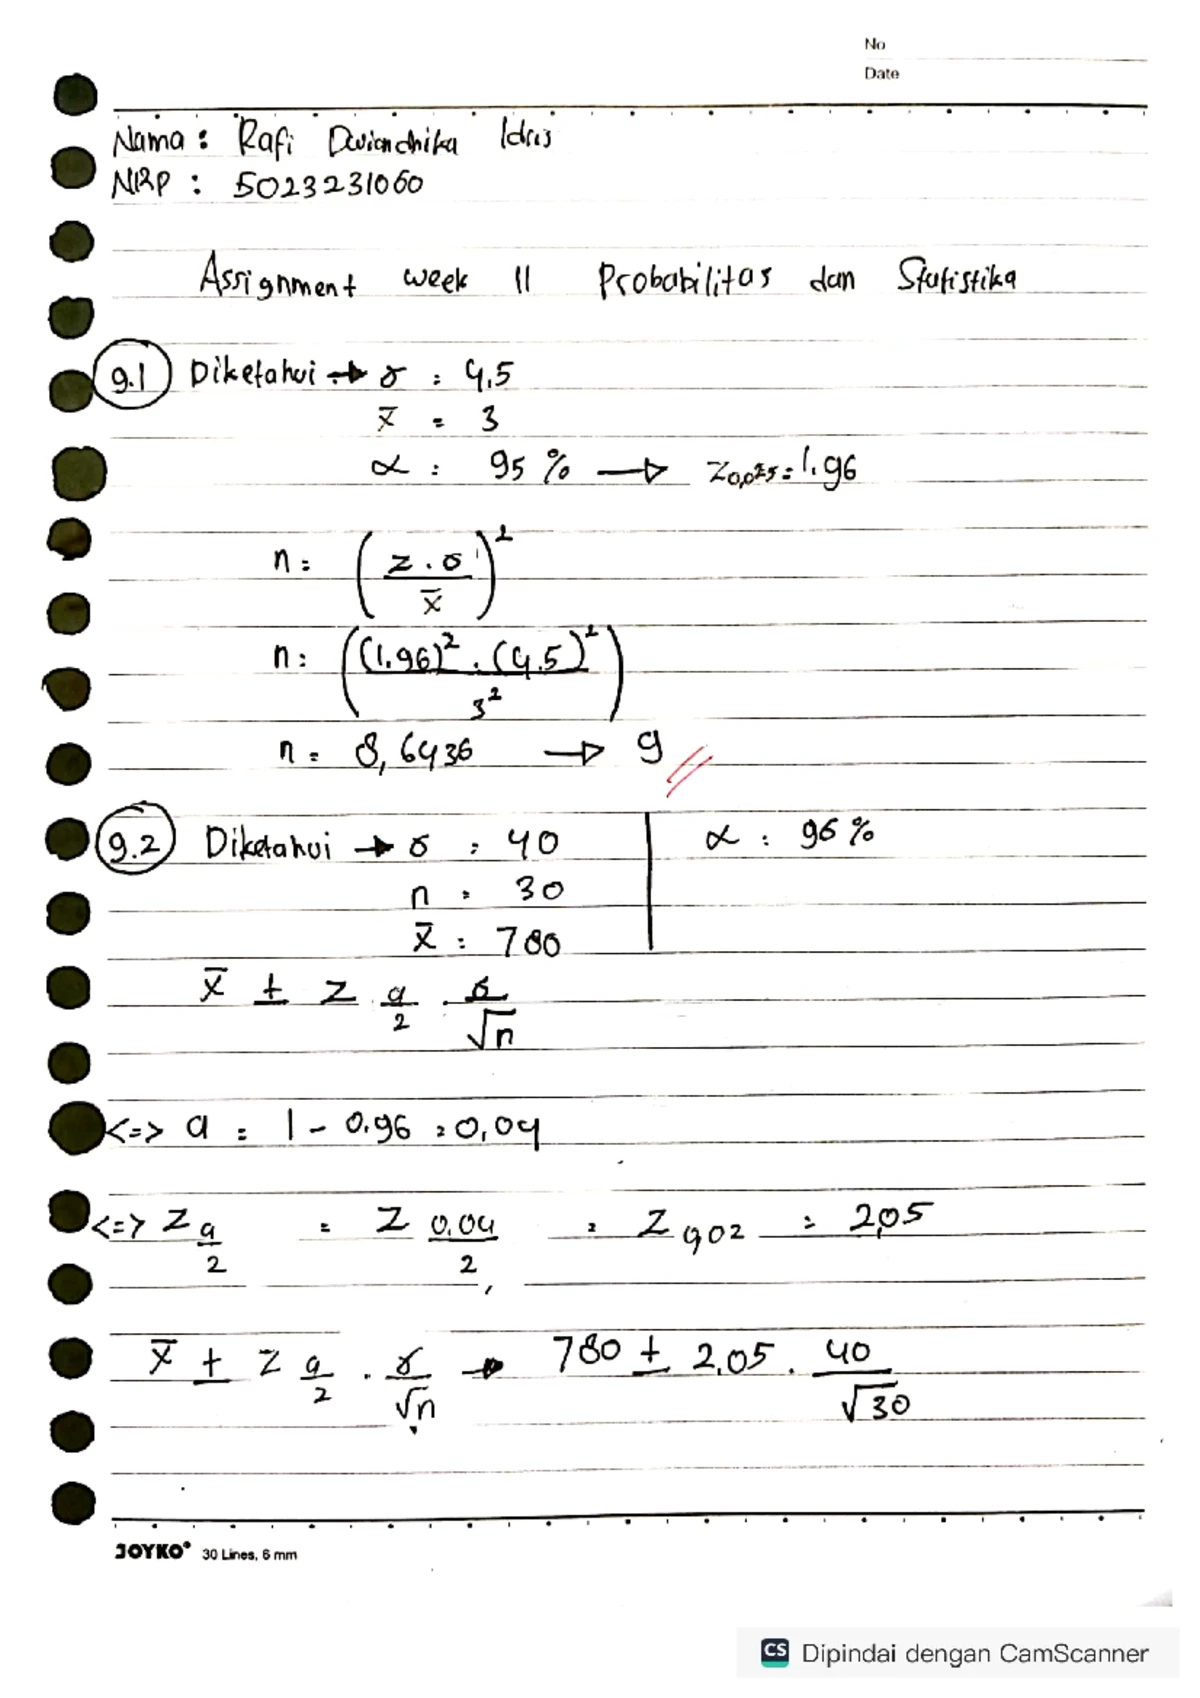 No
Date
Nama : Rafi Dwiandhika Idris
NRP : 5023231060
Assignment week 11 Probabilitas dan Statistika
9.1 Diketahui → σ = 4,5
x̄ = 3
α = 95 % → Z0,025 = 1.96
n = (z . σ / x̄)²
n = ((1.96)² . (4.5)² / 3²)
n = 8,6436 → 9 //
9.2 Diketahui → σ = 40 | α = 96 %
n = 30
x̄ = 780
x̄ ± z a/2 . σ/√n
<=> a = 1 - 0.96 = 0,04
<=> Z a/2 = Z 0.04/2 = Z 0,02 = 2,05
x̄ ± z a/2 . σ/√n → 780 ± 2,05 . 40/√30
JOYKO® 30 Lines, 6 mm
CS Dipindai dengan CamScanner